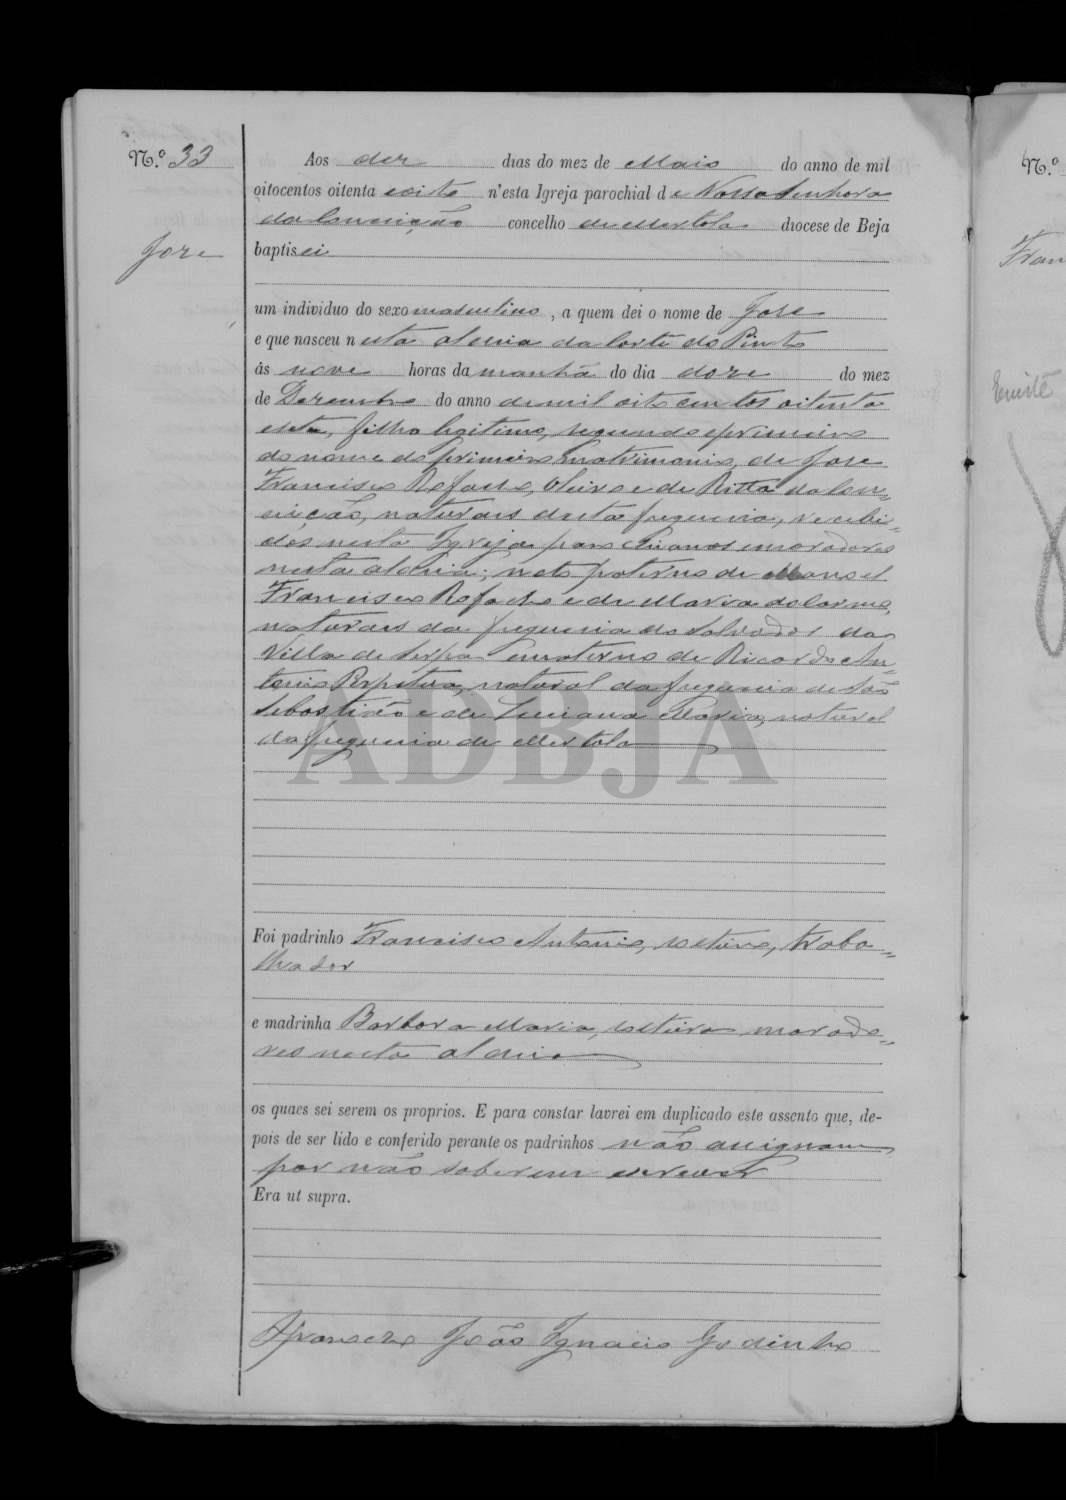 N.º 33
Aos dez dias do mez de Maio do anno de mil
oitocentos oitenta e oito n'esta Igreja parochial de Nossa Senhora
da Conceição concelho de Mertola diocese de Beja
José
baptisei
um individuo do sexo masculino, a quem dei o nome de José
e que nasceu nesta aldeia da Corte do Pinto
ás nove horas da manhã do dia doze do mez
de Dezembro do anno de mil oito centos oitenta
e sete, filho legitimo, segundo e primeiro
do nome do primeiro matrimonio, de José
Francisco Rofacho, e de Ritta da Con=
ceição, naturaes desta freguesia, recebi=
dos nesta Igreja e moradores
nesta aldeia; neto paterno de Manoel
Francisco Rofacho e de Maria do Carmo,
naturaes da freguesia do Salvador da
Villa de Serpa e materno de Ricardo An=
tonio, natural da freguesia de São
Sebastião e de Luciana Maria, natural
da freguesia de Mertola
ADBJA
Foi padrinho Francisco Antonio, solteiro, traba=
lhador
e madrinha Barbora Maria, solteira morado=
res nesta aldeia
os quaes sei serem os proprios. E para constar lavrei em duplicado este assento que, de-
pois de ser lido e conferido perante os padrinhos não assignam
por não saberem escrever
Era ut supra.
João Ignacio Godinho
N.º
Fran